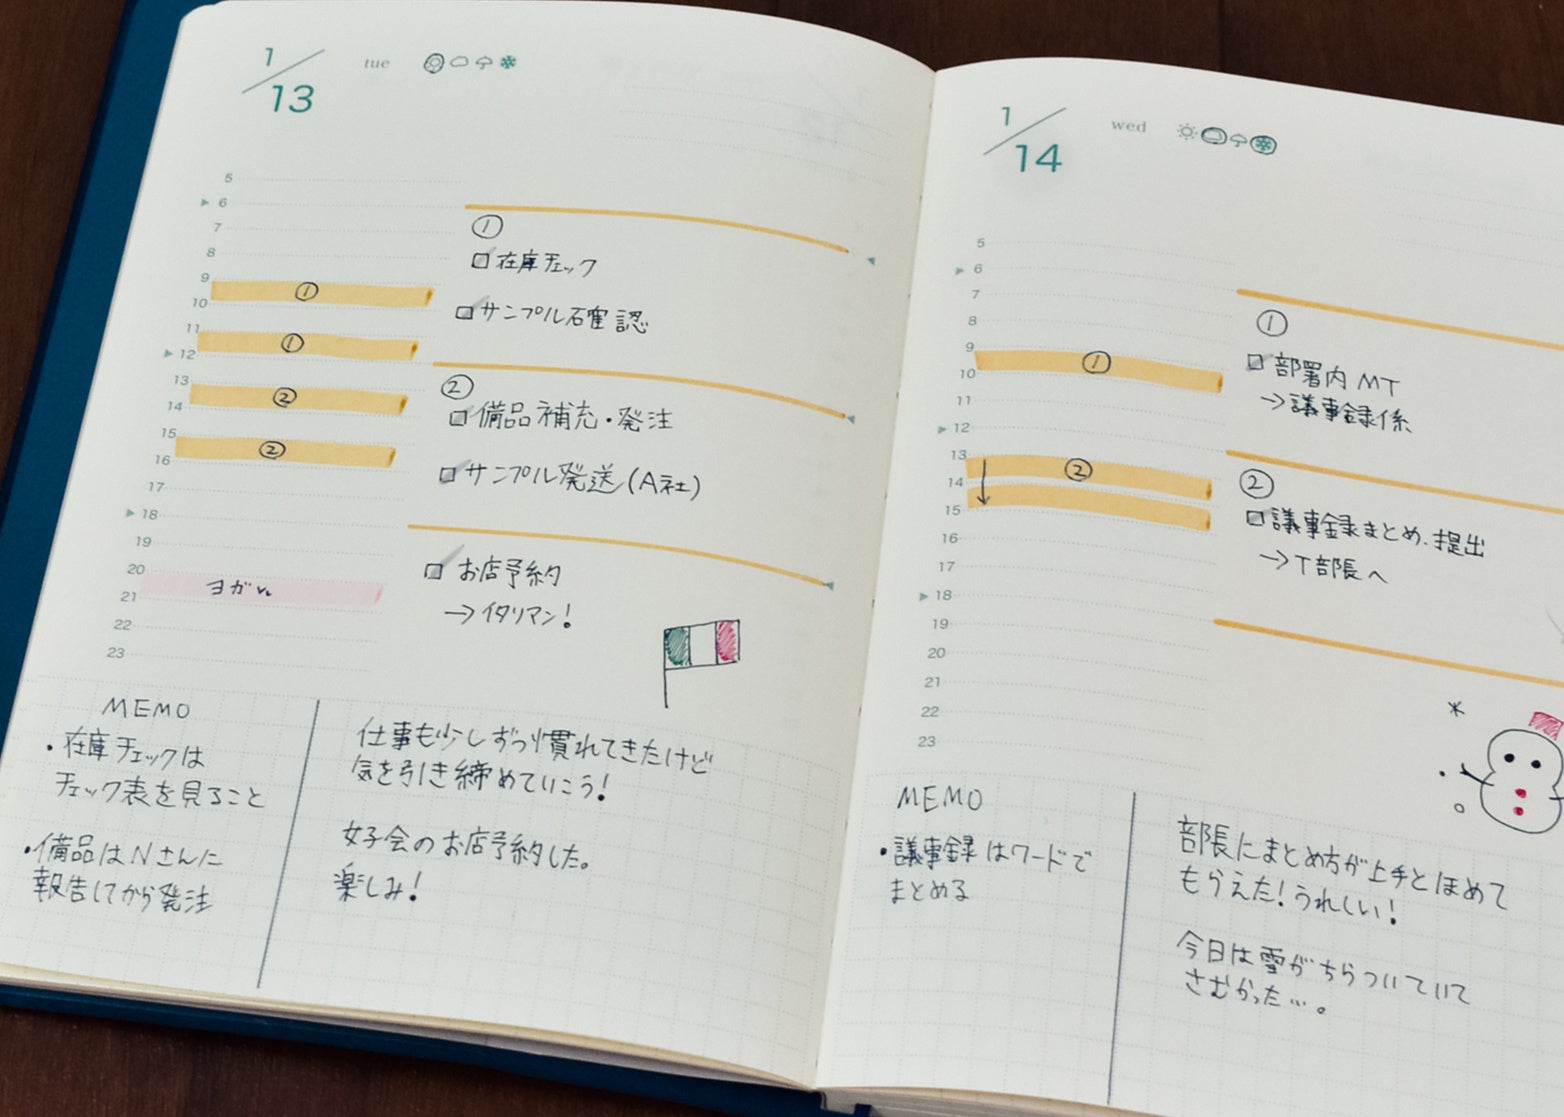 1/13 tue
5
6
7
8
9
①
10
11
①
12
13
②
14
15
②
16
17
18
19
20
ヨガ
21
22
23
①
在庫チェック
サンプル確認
②
備品補充・発注
サンプル発送(A社)
お店予約
→イタリマン!
MEMO
・在庫チェックは
チェック表を見ること
・備品はNさんに
報告してから発注
仕事も少しずつ慣れてきたけど
気を引き締めていこう!
女子会のお店予約した。
楽しみ!
1/14 wed
5
6
7
8
9
①
10
11
12
13
②
14
15
16
17
18
19
20
21
22
23
①
部署内MT
→議事録係
②
議事録まとめ、提出
→T部長へ
MEMO
・議事録はワードで
まとめる
部長にまとめ方が上手とほめて
もらえた!うれしい!
今日は雪がちらついていて
さむかった…。